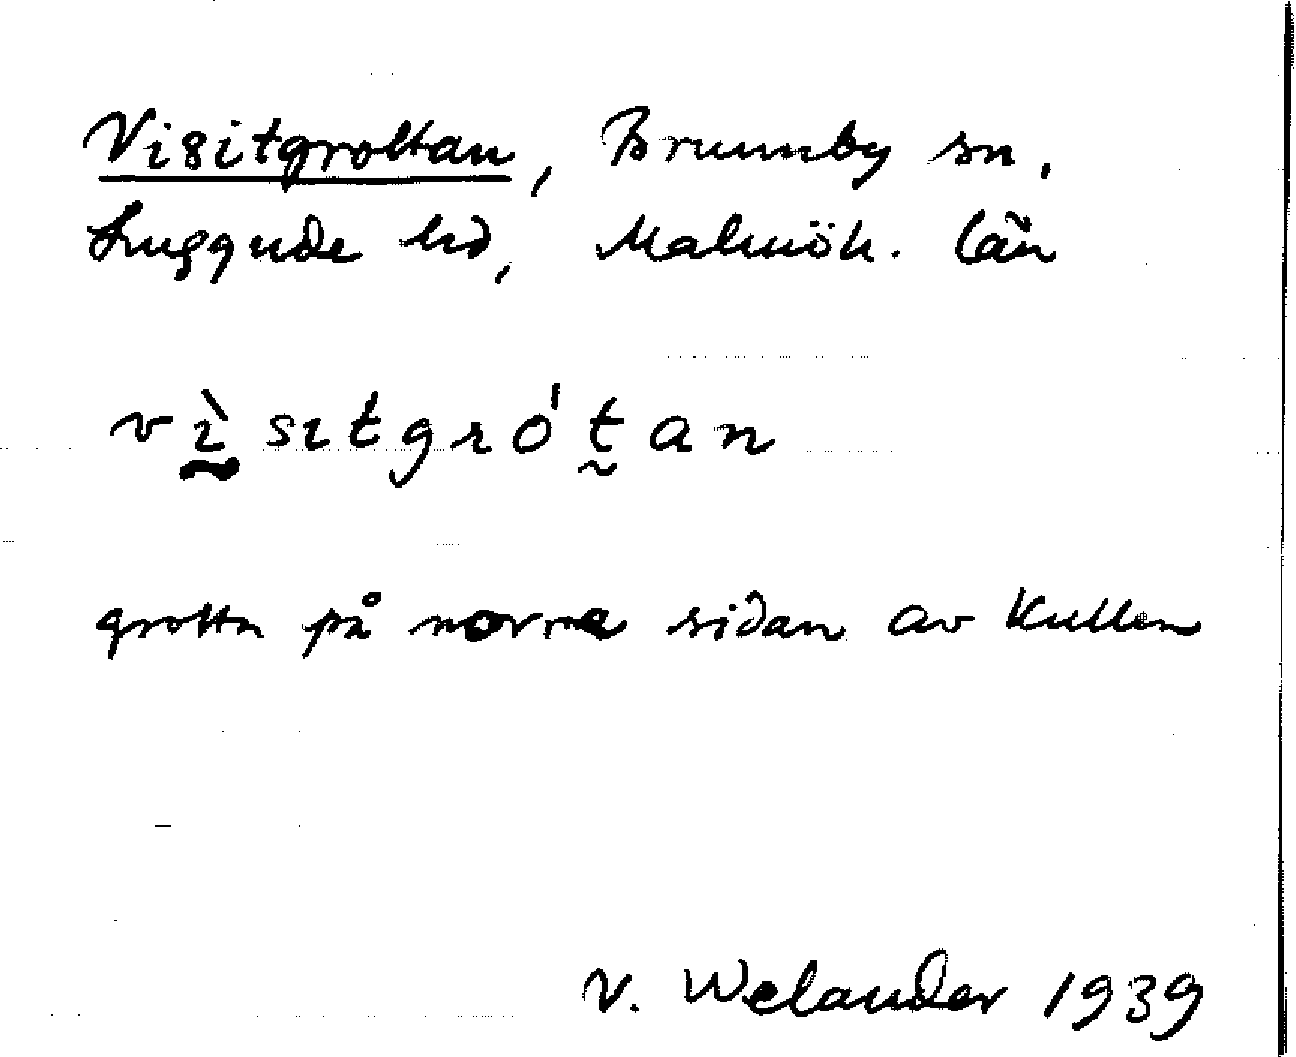 Visitgrottan, Brunnby sn.
Luggude hd, Malmöh. län
vìsıtgró́tan
grotta på norra sidan av Kullen
V. Welander 1939